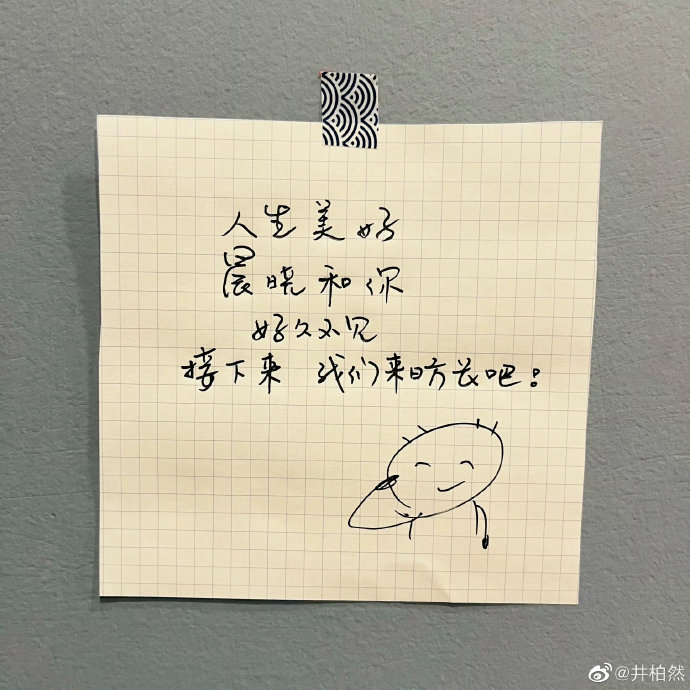 人生美好
晨晓和你
好久不见
接下来 我们来日方长吧！
@井柏然